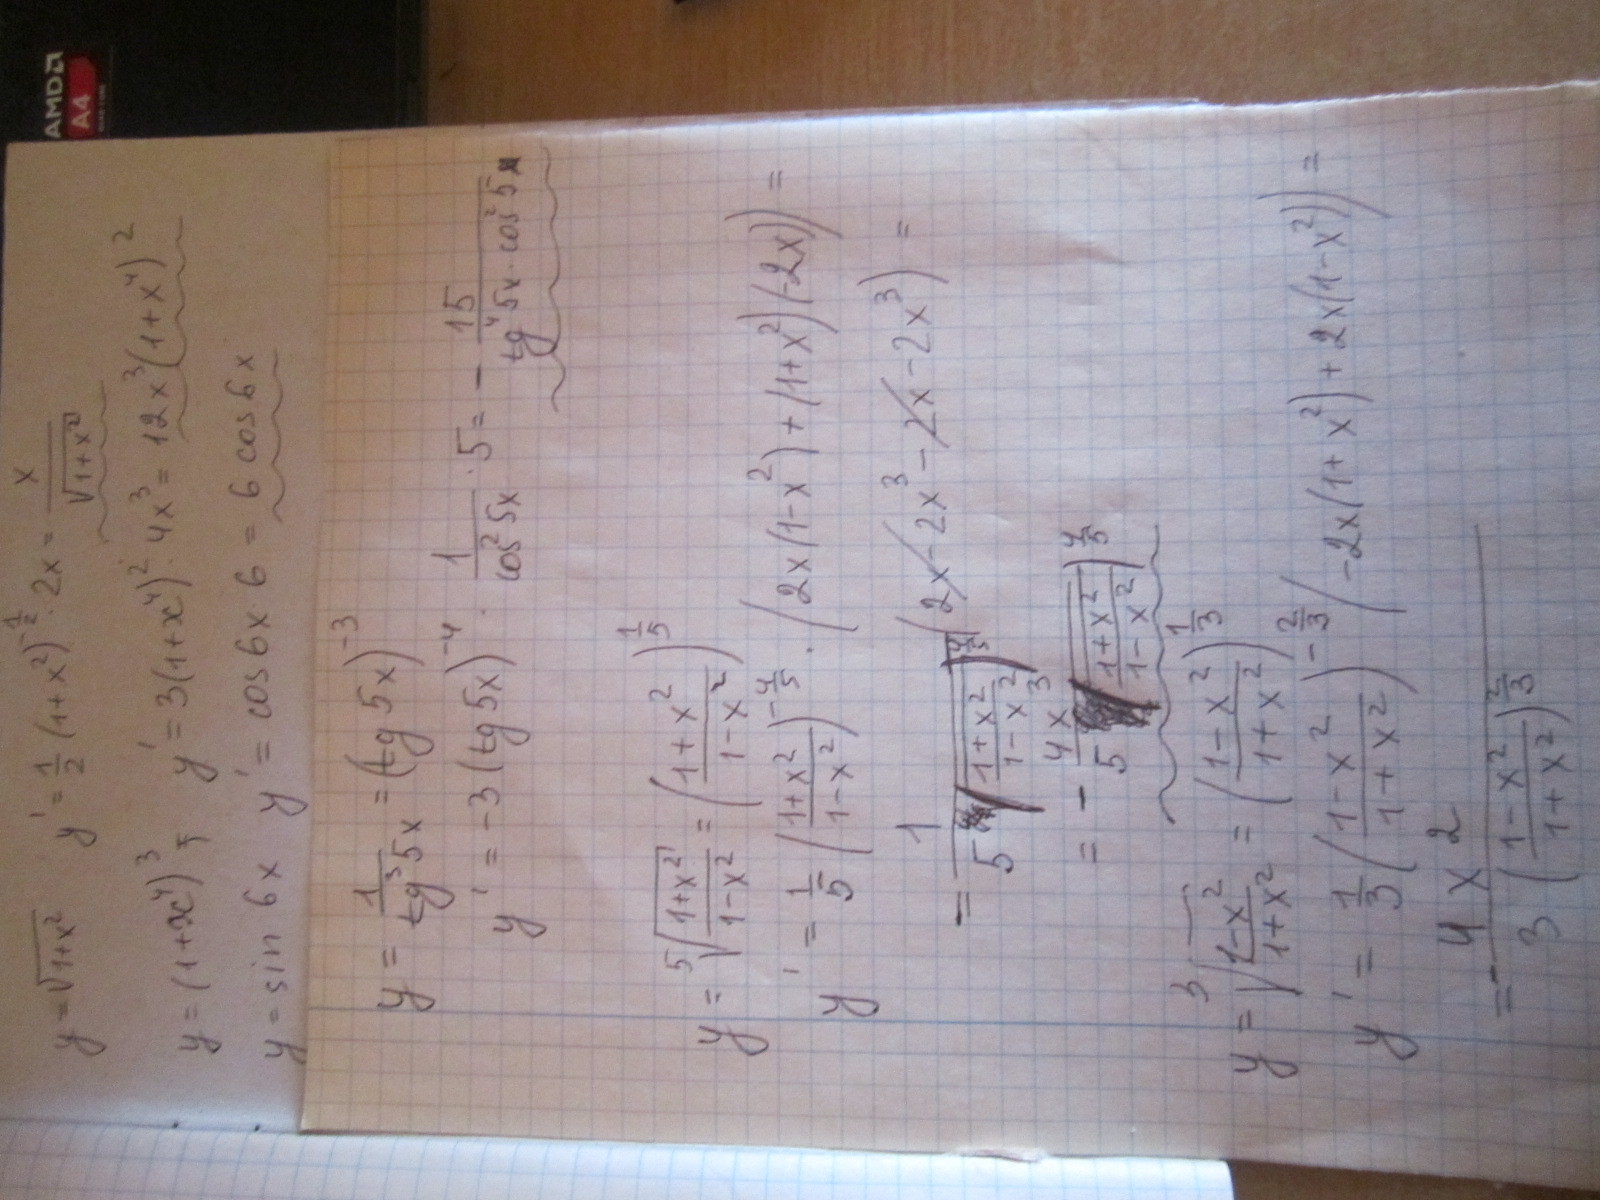 AMD
A4
y = √(1+x²)   y' = 1/2 (1+x²)^(-1/2) · 2x = x/√(1+x²)
y = (1+x⁴)³   y' = 3(1+x⁴)² · 4x³ = 12x³(1+x⁴)²
y = sin 6x   y' = cos 6x · 6 = 6 cos 6x
y = 1/(tg³ 5x) = (tg 5x)^(-3)
y' = -3 (tg 5x)^(-4) · 1/(cos² 5x) · 5 = - 15/(tg⁴ 5x · cos² 5x)
y = ⁵√((1+x²)/(1-x²)) = ((1+x²)/(1-x²))^(1/5)
y' = 1/5 ((1+x²)/(1-x²))^(-4/5) · (2x(1-x²) + (1+x²)(-2x)) =
= 1/(5 ((1+x²)/(1-x²))^(4/5)) (2x - 2x³ - 2x - 2x³) =
= - 4x³/(5 ((1+x²)/(1-x²))^(4/5))
y = ³√((1-x²)/(1+x²)) = ((1-x²)/(1+x²))^(1/3)
y' = 1/3 ((1-x²)/(1+x²))^(-2/3) (-2x(1+x²) + 2x(1-x²)) =
= - 4x²/(3 ((1-x²)/(1+x²))^(2/3))